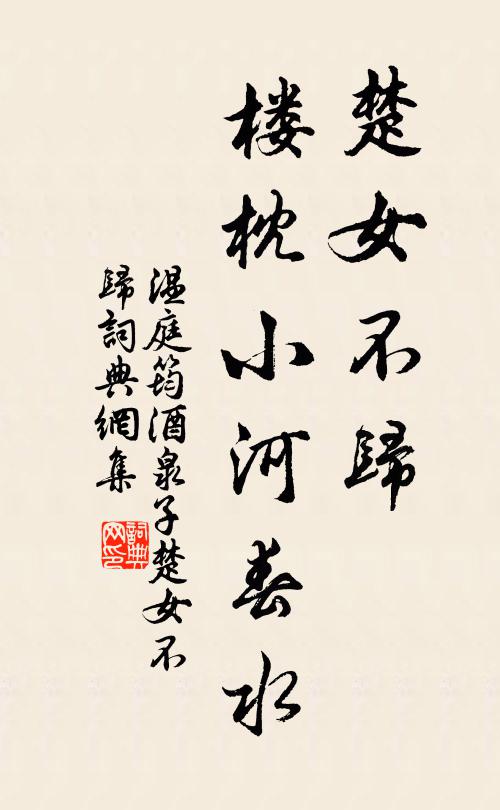 楚女不歸
楼枕小河春水
温庭筠酒泉子楚女不
歸詞典網集
詞典
网印